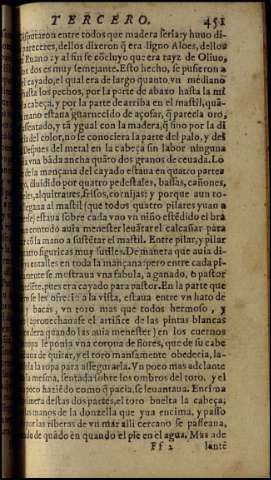 TERCERO. 451
disputaron entre todos que madera seria: y huuo di-
pareceres, dellos dizeron q̃ era ligno Aloes, dellos
Euano: y al fin se cõcluyo que era rayz de Oliuo,
dos es muy semejante. Esto hecho, se pusieron a
el cayado, el qual era de largo quanto vn mediano
hasta los pechos, por la parte de abaxo hasta la mi
cabeça, y por la parte de arriba en el mastil, quã-
mano estaua guarnecido de açofar, q̃ parecia oro,
assentado, y tã ygual con la madera, q̃ sino por la di
del color, no se conociera la parte del palo, y del
Despues del metal en la cabeça sin labor ninguna
vna bãda ancha quãto dos granos de ceuada. Lo
de la mançana del cayado estaua en quatro partes
diuidido por quatro pedestales, basas, cañones,
alquitraues, frisos, cornijas: y porque aun to-
al mastil (que todos quatro pilares yuan a
estaua sobre cada vno vn niño estẽdido el bra
contodo auia menester leuãtar el calcañar para
la mano a sustẽtar el mastil. Entre pilar, y pilar
figuricas muy sutiles. De manera que auia di-
entalles en toda la mançana: pero entre cada pi-
se mostraua vna fabula, a ganado, o pastor
pues era cayado para pastor. En la parte que
se les ofrecio a la vista, estaua entre vn hato de
y bacas, vn toro mas que todos hermoso, y
aprouechaose el artifice de las pintas blancas
(quando las auia menester) en los cuernos
se ponia vna corona de flores, que de su cabe
de quitar, y el toro mansamente obedecia, la-
la ropa para assegurarla. Vn poco mas adelante
la mesma, sentada sobre los ombros del toro, y el
haziẽdo como q̃ pacia, se leuantaua. Encima
destas dos partes, el toro buelta la cabeça,
manos de la donzella que yua encima, y passo
las riberas de vn mar alli cercano se passeaua,
de quãdo en quando el pie en el agua. Mas ade
Ff 2 lante